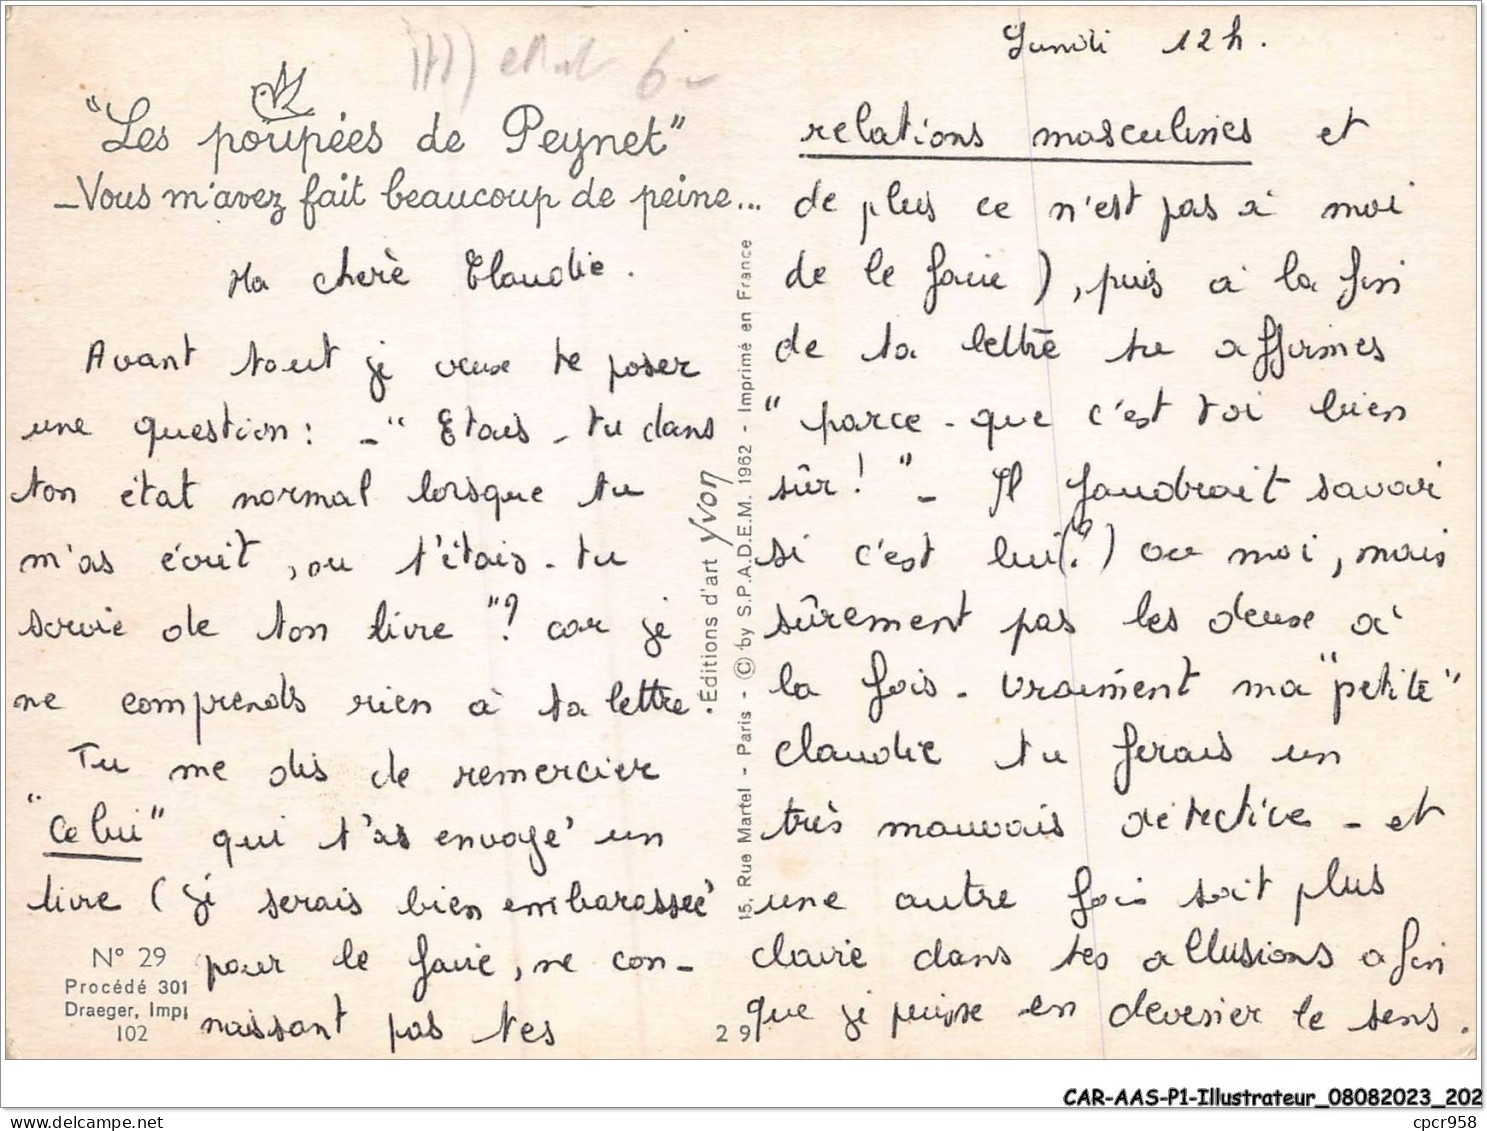 Lundi 12h.
"Les poupées de Peynet"
_Vous m'avez fait beaucoup de peine...
Ma cherè Claudie.
Avant tout je veux te poser
une question : - " Etais-tu dans
ton état normal lorsque tu
m'as écrit, ou t'étais-tu
servie de ton livre "? car je
ne comprends rien à ta lettre.
Tu me dis de remercier
"Celui" qui t'as envoyé un
livre ( je serais bien embarassée
pour le faire, ne con-
naissant pas tes
N° 29
Procédé 301
Draeger, Imp
102
Éditions d'art Yvon
15, Rue Martel - Paris - © by S.P.A.D.E.M. 1962 - Imprimé en France
29
relations masculines et
de plus ce n'est pas à moi
de le faire ), puis à la fin
de ta lettre tu affirmes
" parce-que c'est toi bien
sûr ! " - Il faudrait savoir
si c'est lui(?) ou moi, mais
sûrement pas les deux à
la fois. Vraiment ma "petite"
claudie tu ferais un
très mauvais détective - et
une autre fois soit plus
claire dans tes allusions afin
que je puisse en deviner le sens.
CAR-AAS-P1-Illustrateur_08082023_202
delcampe.net
cpcr958